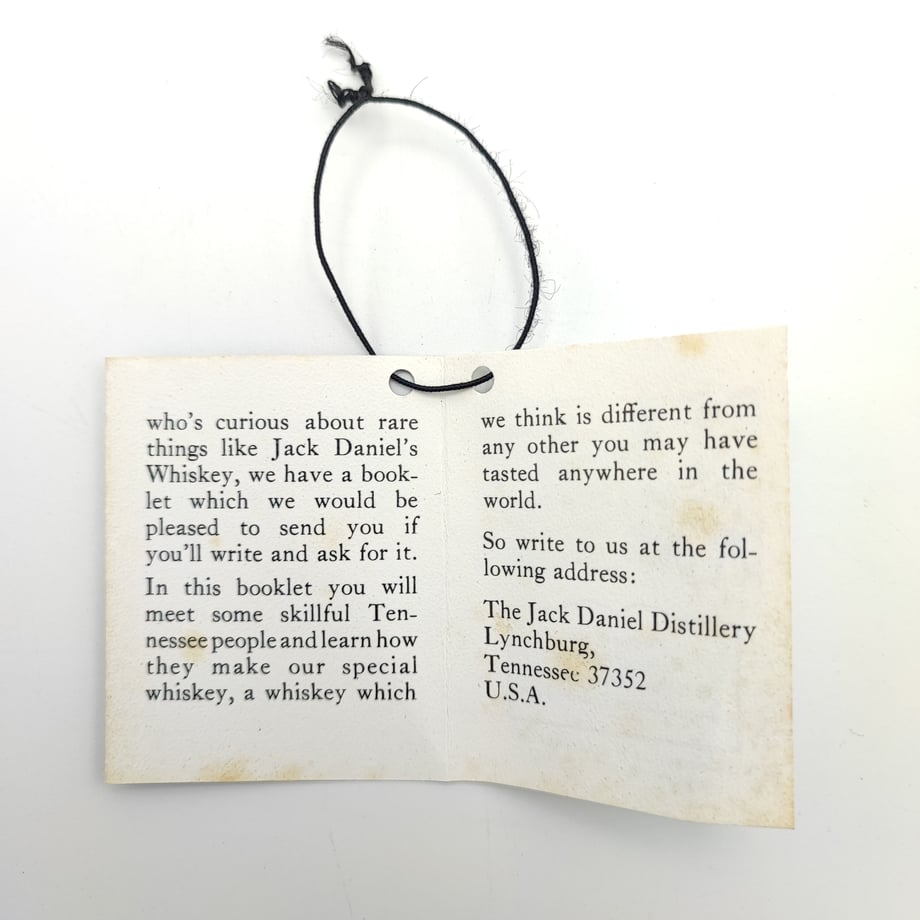 who's curious about rare
things like Jack Daniel's
Whiskey, we have a book-
let which we would be
pleased to send you if
you'll write and ask for it.
In this booklet you will
meet some skillful Ten-
nessee people and learn how
they make our special
whiskey, a whiskey which
we think is different from
any other you may have
tasted anywhere in the
world.
So write to us at the fol-
lowing address:
The Jack Daniel Distillery
Lynchburg,
Tennessee 37352
U.S.A.